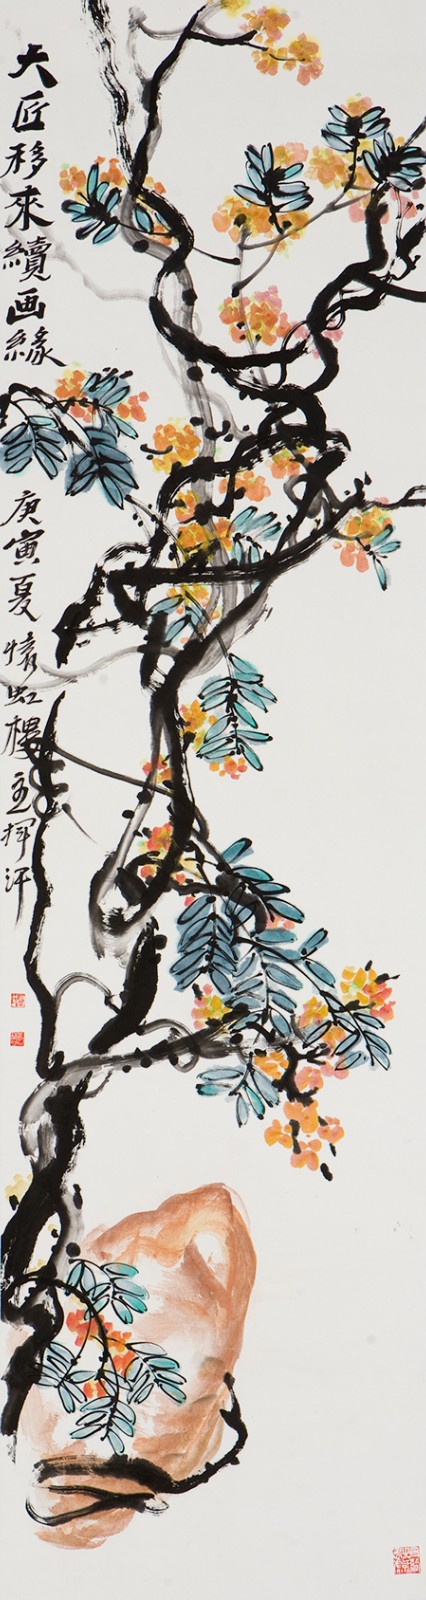 大匠移來續画緣
庚寅夏情虹樓主揮汗